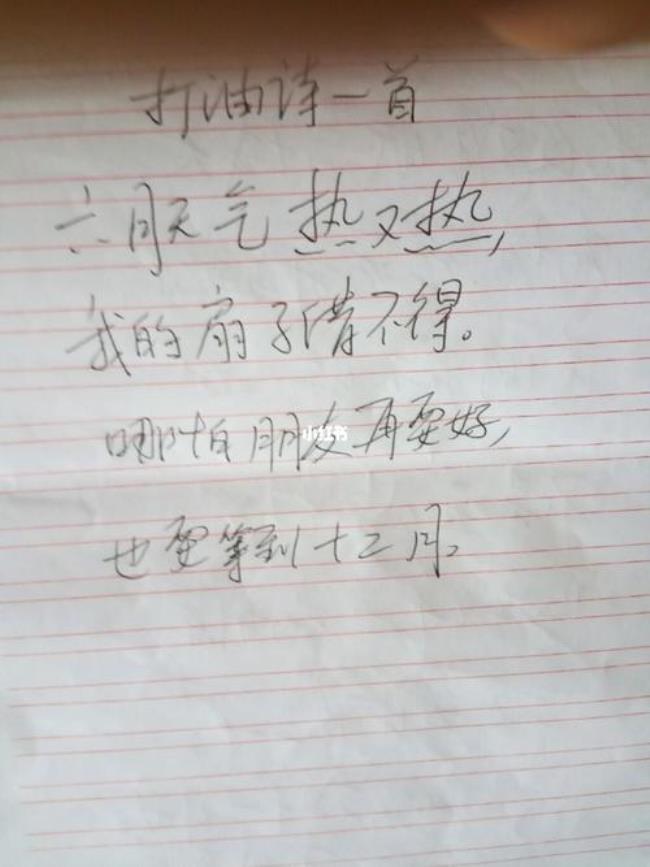 打油诗一首
六月天气热又热,
我的扇子借不得。
哪怕朋友再要好,
小红书
也要等到十二月。